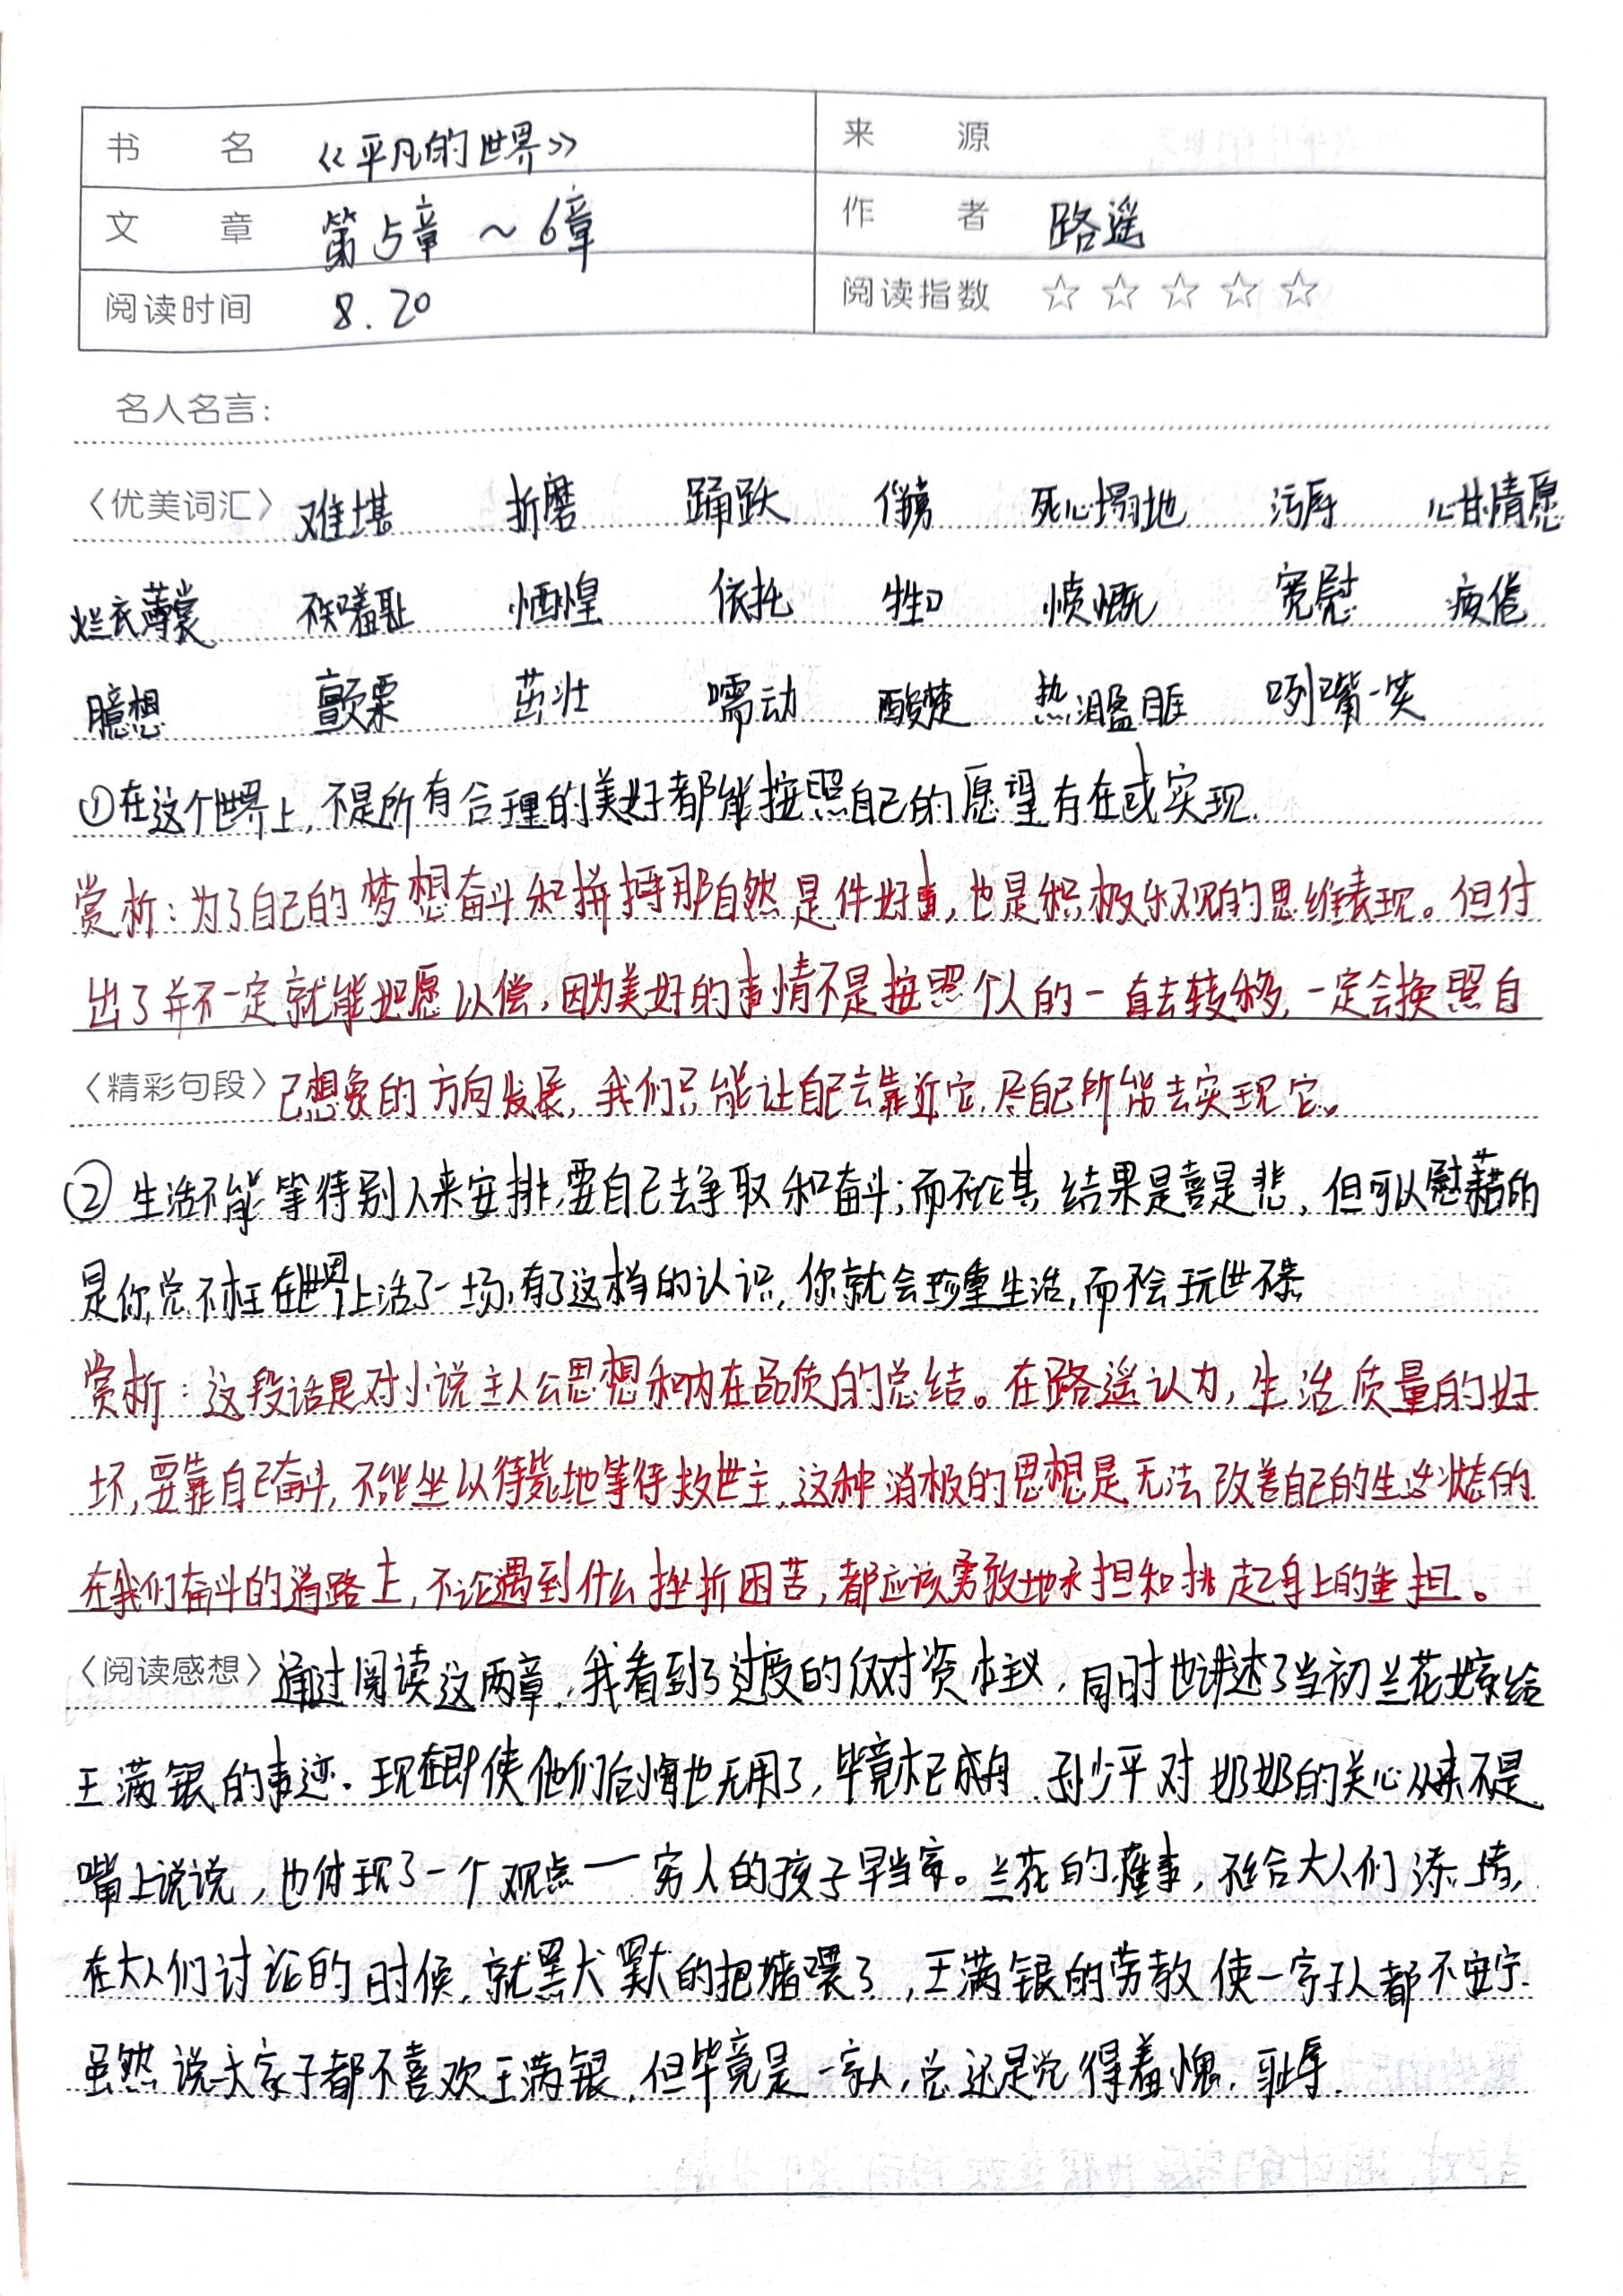 书 名 《平凡的世界》 来 源
文 章 第5章~6章 作 者 路遥
阅读时间 8.20 阅读指数 ☆☆☆☆☆
名人名言:
〈优美词汇〉难堪 折磨 踊跃 死心塌地 污辱 心甘情愿
烂衣薄裳 不知羞耻 恓惶 依托 牲口 愤慨 宽慰 疲倦
臆想 颤栗 茁壮 嚅动 酸楚 热泪盈眶 咧嘴一笑
①在这个世界上,不是所有合理的美好都能按照自己的愿望存在或实现.
赏析:为了自己的梦想奋斗和拼搏那自然是件好事,也是积极乐观的思维表现。但付
出了并不一定就能如愿以偿,因为美好的事情不是按照个人的一直去转移,一定会换照自
〈精彩句段〉己想象的方向发展,我们只能让自己去靠近它,尽自己所能去实现它。
②生活不能等待别人来安排,要自己去争取和奋斗;而不论其结果是喜是悲,但可以慰藉的
是你总不枉在世界上活了一场,有了这样的认识,你就会珍重生活,而不会玩世不恭
赏析:这段话是对小说主人公思想和内在品质的总结。在路遥认为,生活质量的好
坏,要靠自己奋斗,不能坐以待毙地等待救世主,这种消极的思想是无法改善自己的生活状态的
在我们奋斗的道路上,不论遇到什么挫折困苦,都应该勇敢地承担和挑起身上的重担。
〈阅读感想〉通过阅读这两章,我看到了过度的反对资本主义,同时也讲述了当初兰花嫁给
王满银的事迹。现在即使他们后悔也无用了,毕竟木已成舟.孙少平对奶奶的关心从来不是
嘴上说说,也体现了一个观点一穷人的孩子早当家。兰花的懂事,不给大人们添堵,
在大人们讨论的时候,就默默的把猪喂了,王满银的劳教使一家子人都不安宁.
虽然说一大家子都不喜欢王满银,但毕竟是一家人,总还是觉得羞愧,耻辱.